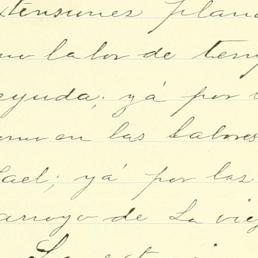 tensiones plan
no labor de tem
ayuda; yá por
como en las labores
ael; yá por las
arroyo de La vie